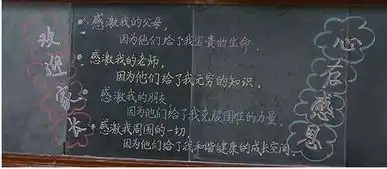 欢迎家长
感激我的父母，
因为他们给了我宝贵的生命。
感激我的老师，
因为他们给了我无穷的知识。
感激我的朋友
因为他们给了我克服困难的力量。
感激我周围的一切，
因为他们给了我和谐健康的成长空间。
心存感恩